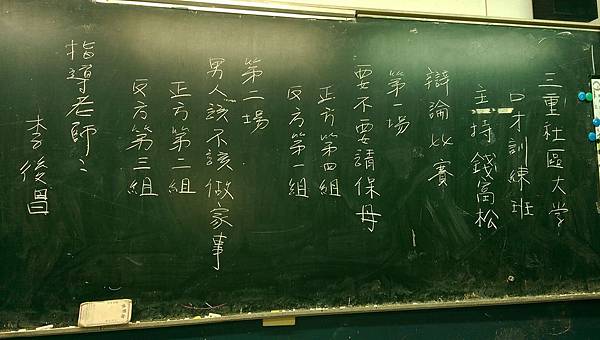 三重社區大学
口才訓練班
主持錢富松
辯論比賽
第一場
要不要請保母
正方第四組
反方第一組
第二場
男人該不該做家事
正方第二組
反方第三組
指導老師:
李後昌